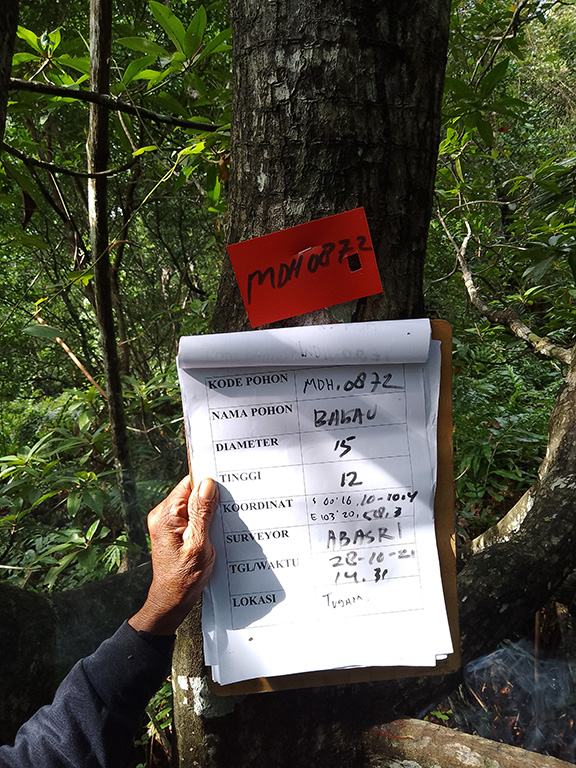 MDH0872
KODE POHON MDH.0872
NAMA POHON BALAU
DIAMETER 15
TINGGI 12
KOORDINAT S 00°16,
E 103°20,
SURVEYOR ABASRI
TGL/WAKTU 28-10-21
14.31
LOKASI